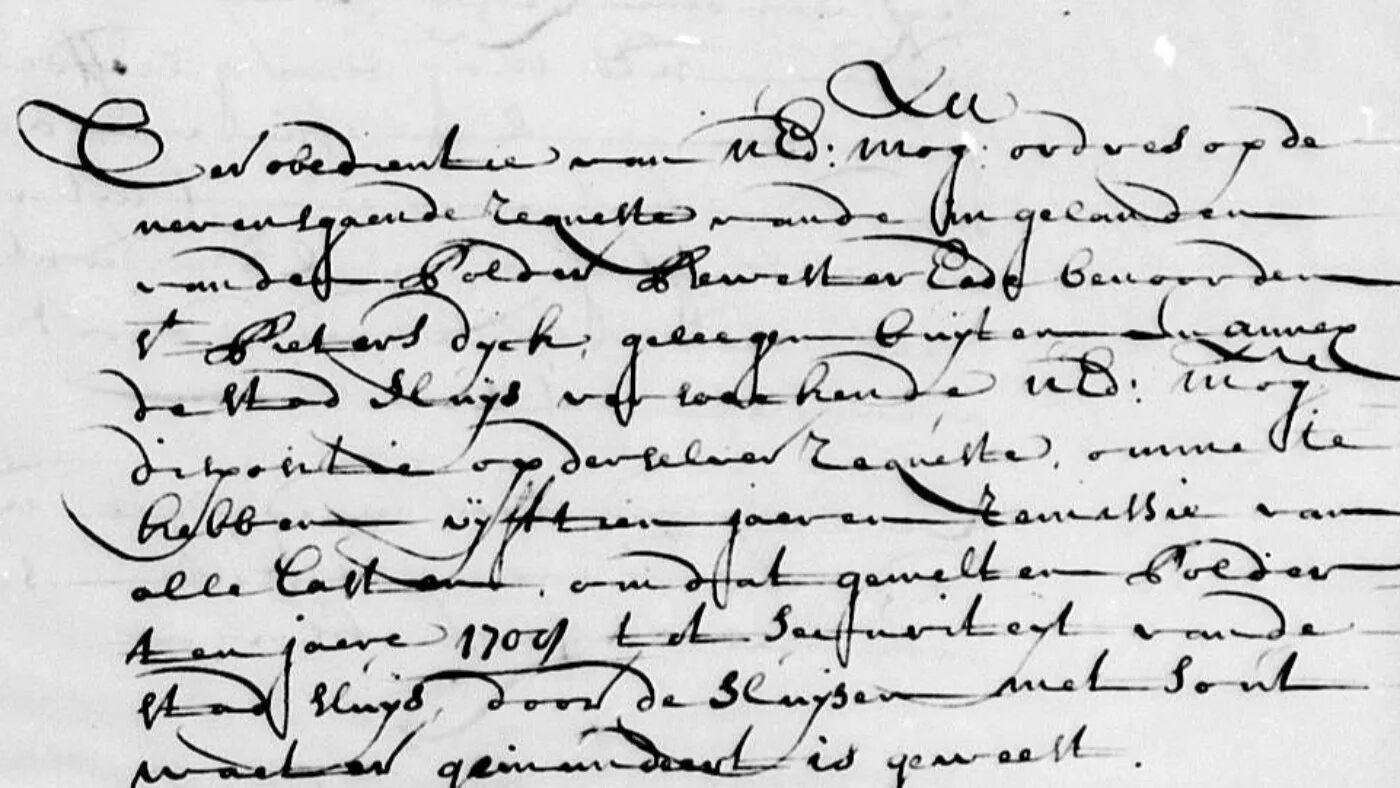 Ter obedientie van UEd: Mog: ordres op de
nevensgaende requeste vande Ingelanden
vanden Polder Bewester Eede benoorden
St Pieters dyck, geleegen buyten en annex
de stad Sluys versoekende UEd: Mog
dispositie op derselver requeste, omme te
hebben vyftien jaeren remissie van
alle Lasten, omdat gemelten Polder
ten jaere tot securiteyt vande
stad Sluys, door de Sluysen met sout
waeter geinundeert is geweest.